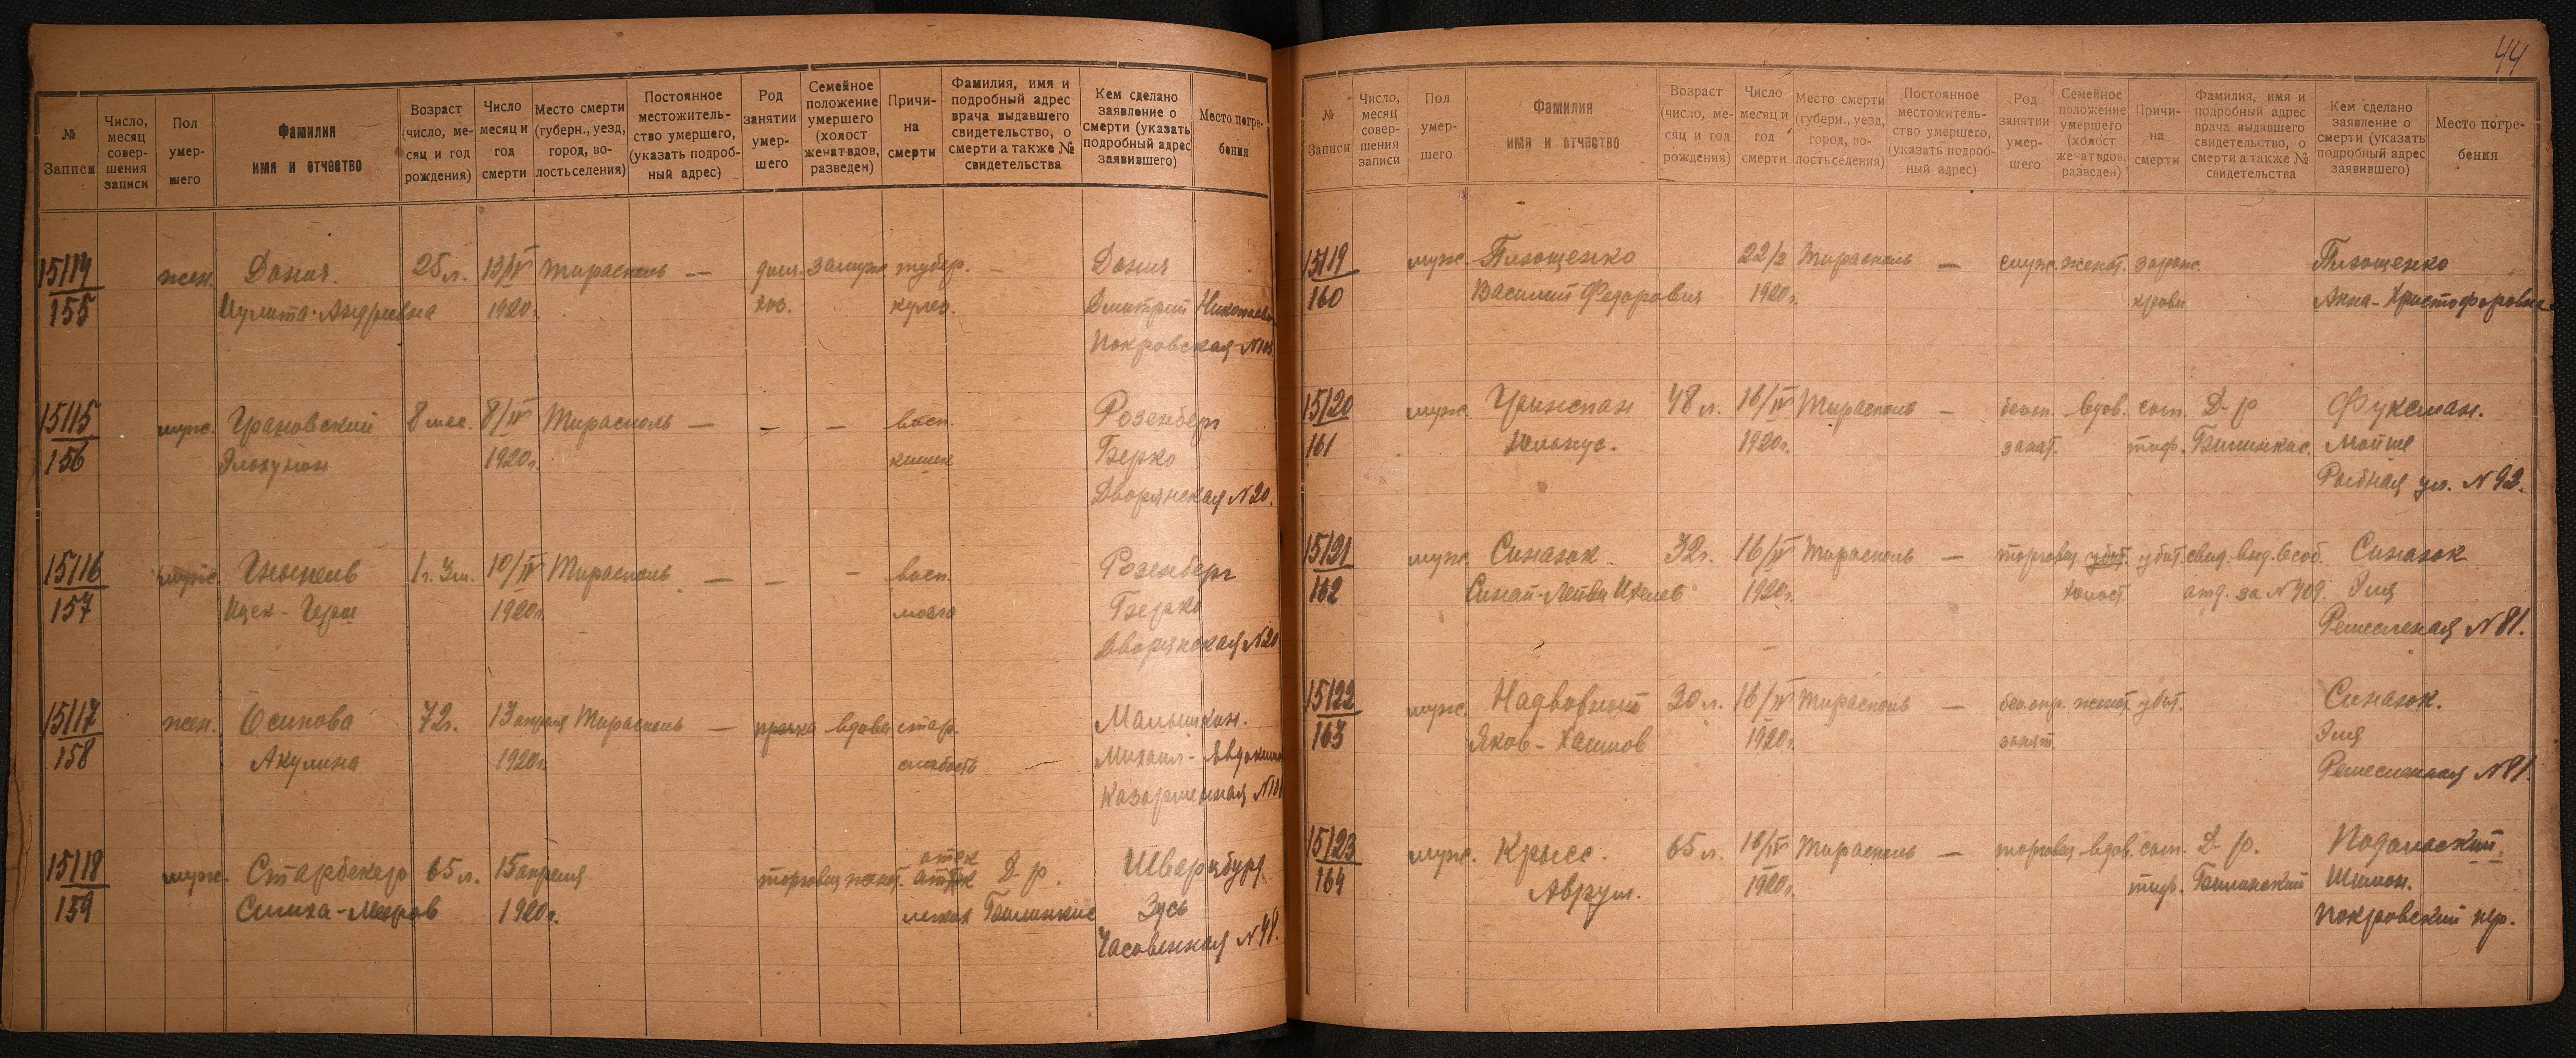 44
№ Записи
Число, месяц совершения записи
Пол умершего
Фамилия имя и отчество
Возраст (число, месяц и год рождения)
Число месяц и год смерти
Место смерти (губерн., уезд, город, волость селения)
Постоянное местожительство умершего, (указать подробный адрес)
Род занятии умершего
Семейное положение умершего (холост женат вдов, разведен)
Причина смерти
Фамилия, имя и подробный адрес врача выдавшего свидетельство, о смерти а также № свидетельства
Кем сделано заявление о смерти (указать подробный адрес заявившего)
Место погребения
15114 жен. Донич 25 л. 13/IV Тирасполь — дом. замуж тубер. Донич
155 Иулита Андреевна 1920г. хоз. кулез. Дмитрий Николаевич
Покровская №
15115 муж. Грановский 8 мес. 8/IV Тирасполь — — — восп. Розенберг
156 1920г. кишек Берко
Дворянская № 20.
15116 муж. 1г. 3м. 10/IV Тирасполь — — — восп. Розенберг
157 Ицек-Герш 1920г. мозга Берко
Дворянская № 20
15117 жен. Осипова 72г. 13 апреля Тирасполь — прачка вдова стар. Малышкин.
158 Акулина 1920г. слабость Михаил
Казарменная №
15118 муж. Старбекер 65 л. 15 апреля торговец женат. отек Д-р. Шварцбурд
159 Симха-Мееров 1920г. легких Бышинкис Зусь
Часовенная № 48.
№ Записи
Число, месяц совершения записи
Пол умершего
Фамилия имя и отчество
Возраст (число, месяц и год рождения)
Число месяц и год смерти
Место смерти (губерн., уезд, город, волость селения)
Постоянное местожительство умершего, (указать подробный адрес)
Род занятии умершего
Семейное положение умершего (холост женат вдов, разведен)
Причина смерти
Фамилия, имя и подробный адрес врача выдавшего свидетельство, о смерти а также № свидетельства
Кем сделано заявление о смерти (указать подробный адрес заявившего)
Место погребения
15119 муж. Плющенко 22/2 Тирасполь — служ. женат. зараж. Плющенко
160 Василий Федорович 1920г. крови Анна-Христофоровна
15120 муж. Гринспан 48 л. 16/IV Тирасполь — безоп. вдов. сып. Д-р Фуксман.
161 1920г. занят. тиф. Мойше
Рыбная ул. № 92.
15121 муж. Синазок 32г. 16/IV Тирасполь — торговец убит свид. выд. Особ. Синазок
162 Синай-Лейви 1920г. холост. отд. за № 409. Эля
Ремесленая № 81.
15122 муж. 30 л. 16/IV Тирасполь — без опр. женат. убит. Синазок.
163 Яков-Хаимов 1920г. занят. Эля
Ремесленная № 81.
15123 муж. Крысс. 65 л. 16/IV Тирасполь — торговец вдов. сып. Д-р. Подольский
164 Аврум. 1920г. тиф. Шимон.
Покровский пер.